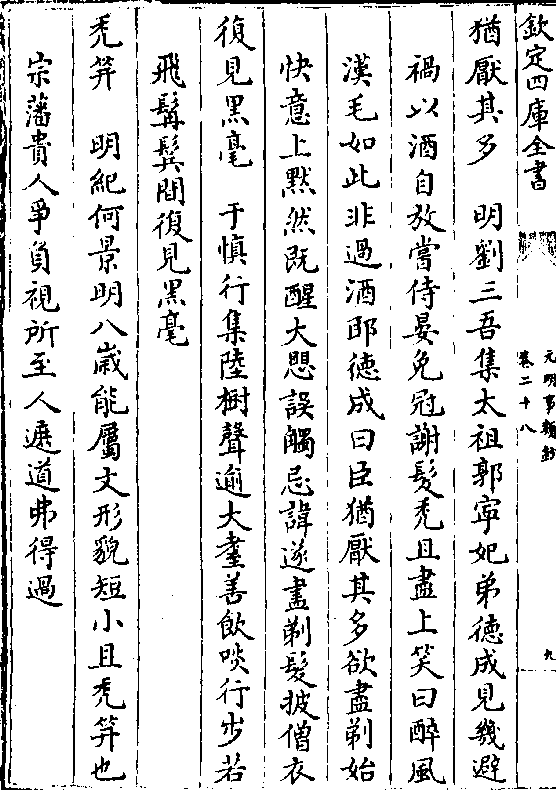 欽定四庫全書
元明事類鈔
卷二十八
九
猶厭其多　明劉三吾集太祖郭寧妃弟徳成見幾避
禍以酒自放嘗侍宴免冠謝髮秃且盡上笑曰醉風
漢毛如此非過酒耶徳成曰臣猶厭其多欲盡剃始
快意上黙然既醒大愳誤觸忌諱遂盡剃髪披僧衣
復見黒毫　于慎行集陸樹聲逾大耋善飲啖行步若
飛髯鬂間復見黒毫
秃筓　明紀何景明八歲能屬文形貌短小且秃筓也
宗藩貴人爭負視所至人遮道弗得過